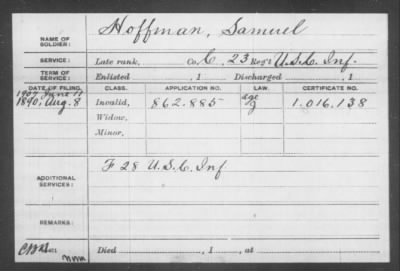 NAME OF SOLDIER: Hoffman, Samuel
SERVICE: Late rank, Co. C, 23 Reg't U.S.C. Inf.
TERM OF SERVICE: Enlisted , 1 Discharged , 1
DATE OF FILING. CLASS. APPLICATION NO. LAW. CERTIFICATE NO.
1907 June 11 age
1890, Aug. 8 Invalid, 862.885 g 1.016.138
Widow,
Minor,
ADDITIONAL SERVICES: F 28 U.S.C. Inf
REMARKS:
Died , 1 , at